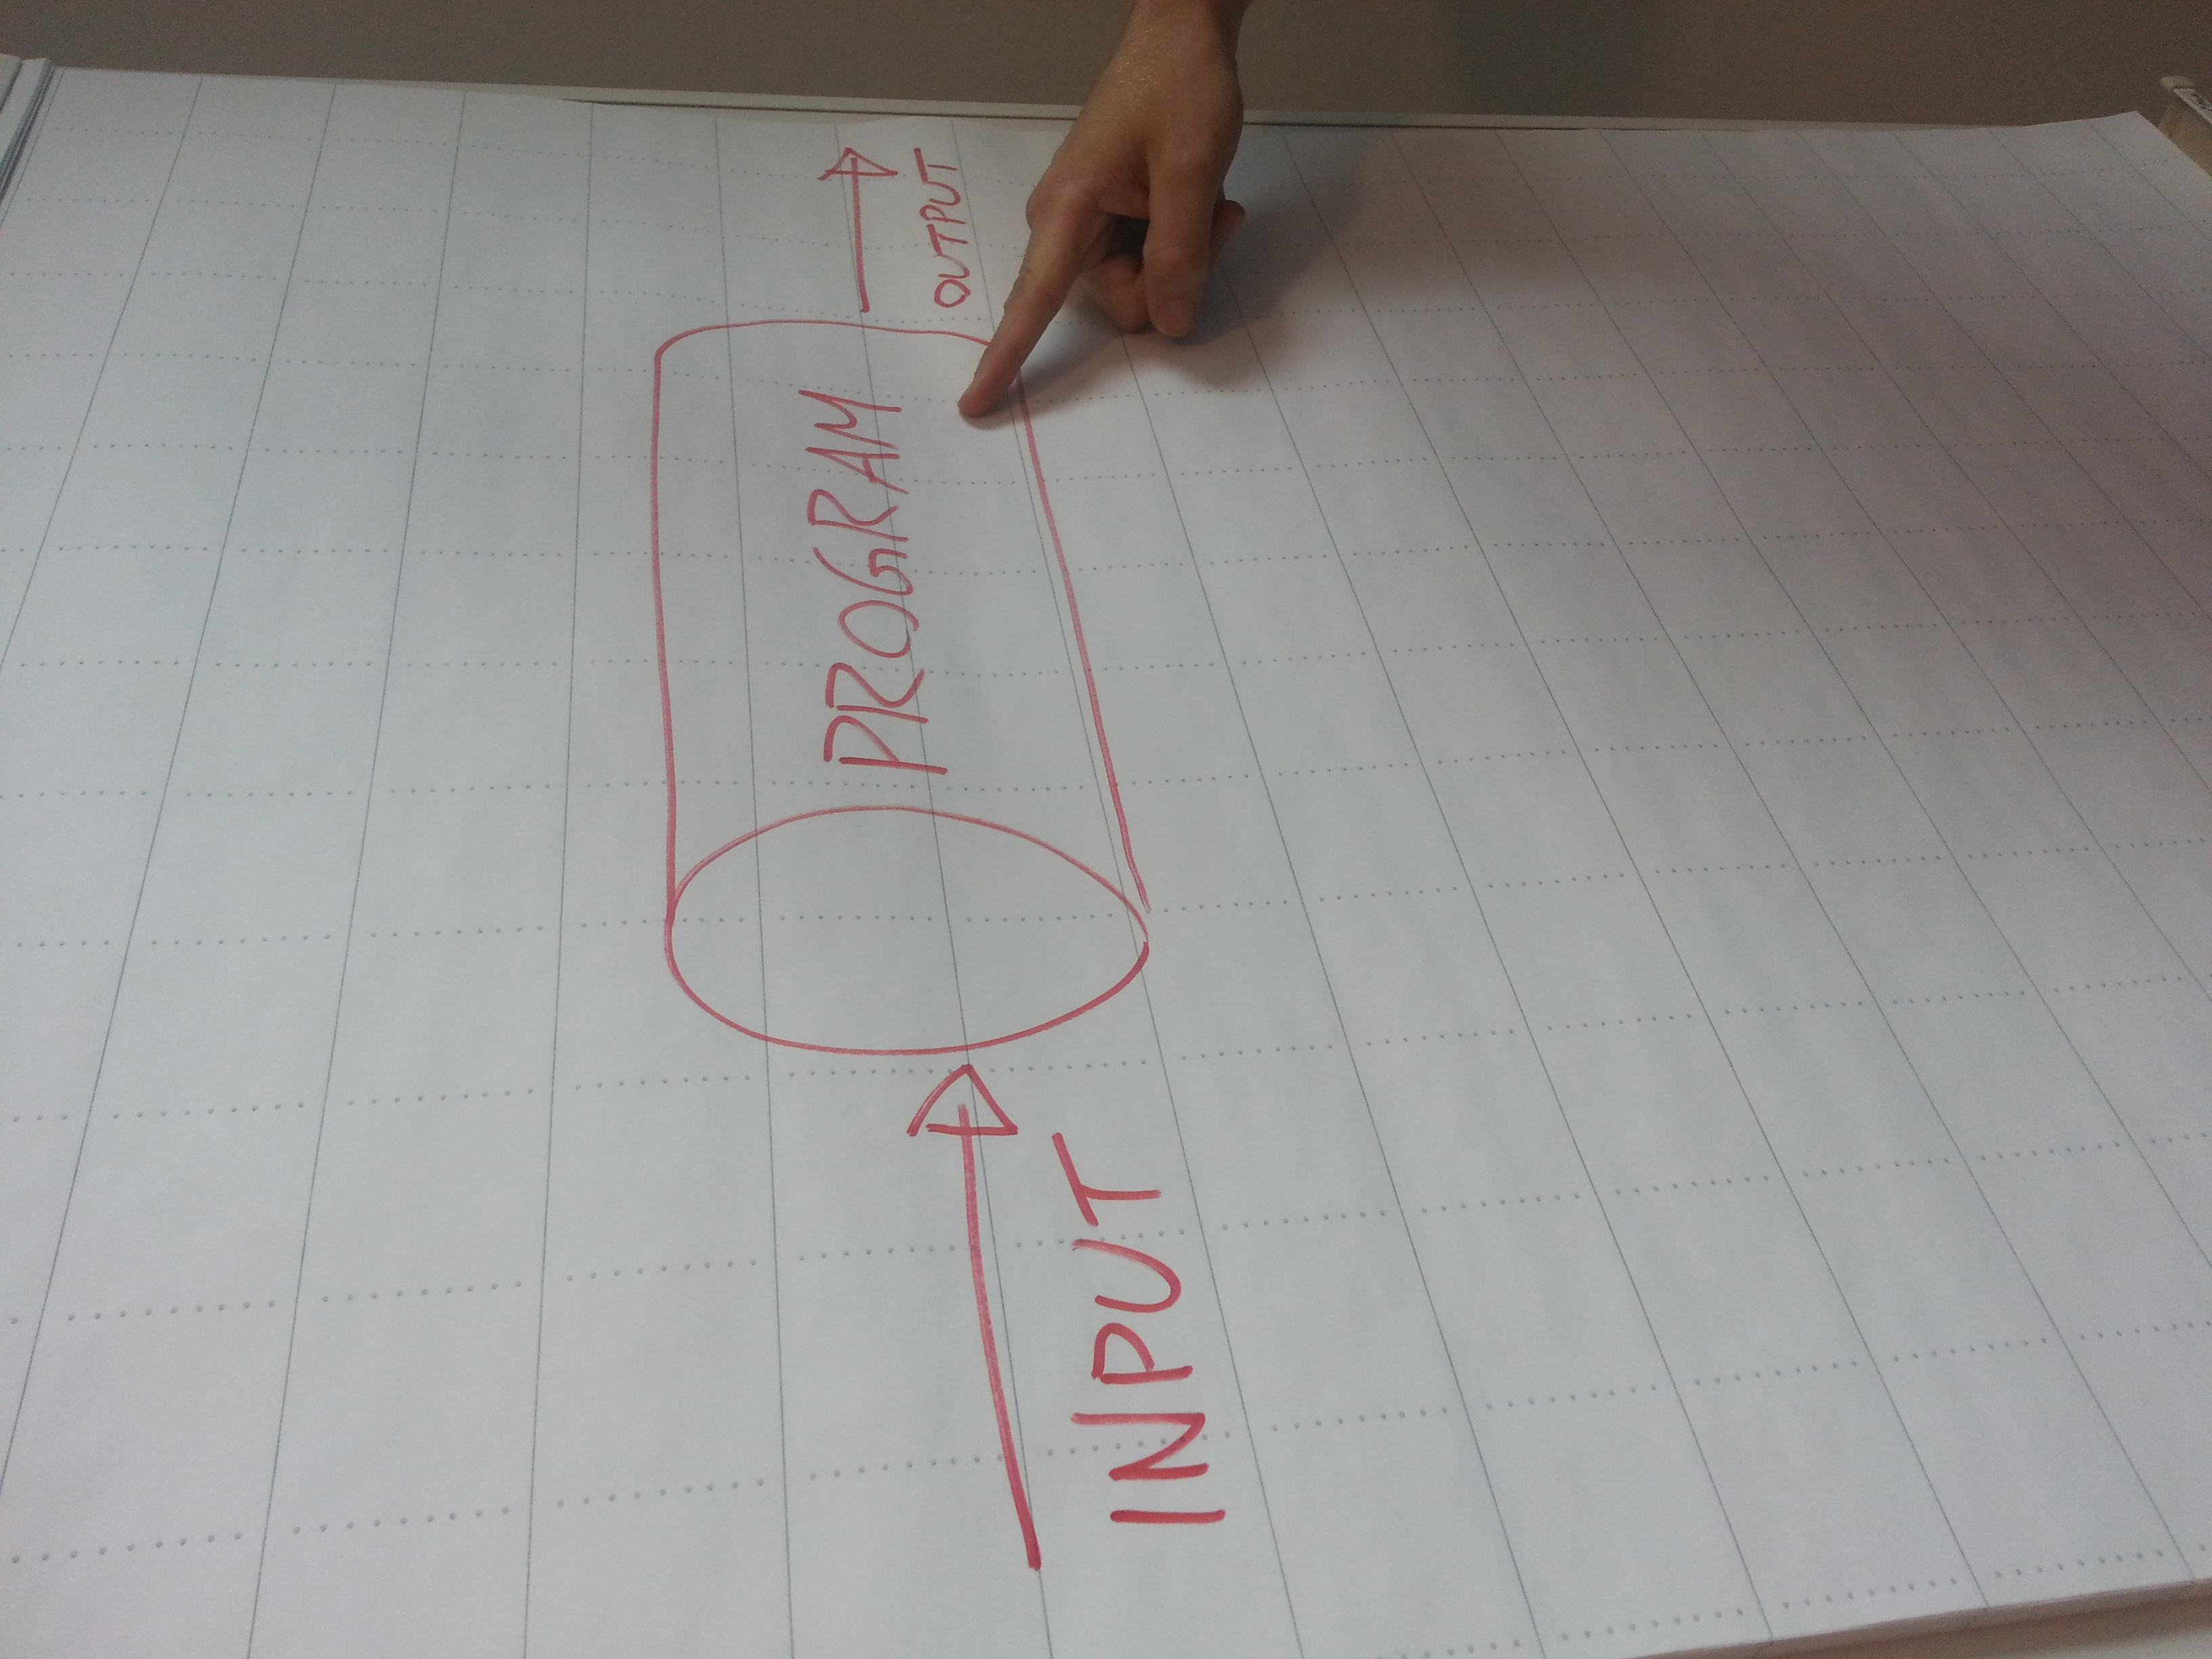 INPUT
PROGRAM
OUTPUT